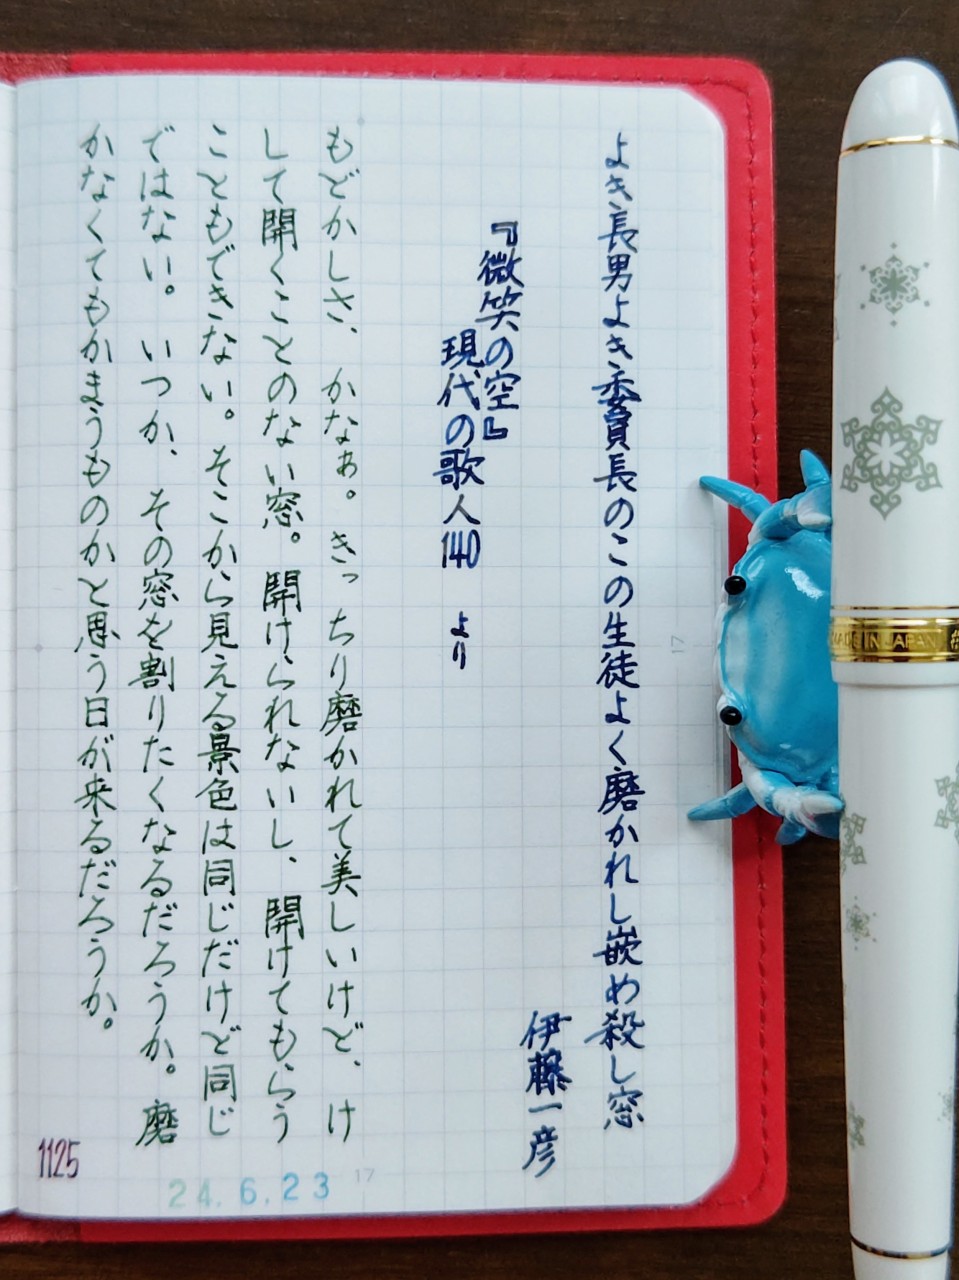 よき長男よき委員長のこの生徒よく磨かれし嵌め殺し窓
伊藤一彦
『微笑の空』
現代の歌人140 より
もどかしさ、かなぁ。きっちり磨かれて美しいけど、け
して開くことのない窓。開けられないし、開けてもらう
こともできない。そこから見える景色は同じだけど同じ
ではない。いつか、その窓を割りたくなるだろうか。磨
かなくてもかまうものかと思う日が来るだろうか。
1125
24.6.23
17
17
MADE IN JAPAN